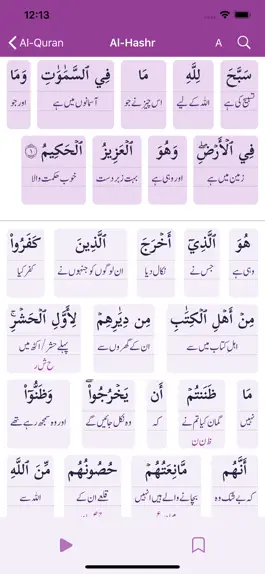 12:13
Al-Quran Al-Hashr A
سَبَّحَ لِلَّهِ مَا فِي ٱلسَّمَٰوَٰتِ وَمَا
تسبیح کی ہے اللہ کے لیے اس چیز نے جو آسمانوں میں ہے اور جو
فِي ٱلْأَرْضِۖ وَهُوَ ٱلْعَزِيزُ ٱلْحَكِيمُ ١
زمین میں ہے اور وہی ہے بہت زبردست خوب حکمت والا
هُوَ ٱلَّذِيٓ أَخْرَجَ ٱلَّذِينَ كَفَرُوا۟
وہی ہے جس نے نکال دیا ان لوگوں کو جنہوں نے کفر کیا
مِنْ أَهْلِ ٱلْكِتَٰبِ مِن دِيَٰرِهِمْ لِأَوَّلِ ٱلْحَشْرِۚ
اہل کتاب میں سے ان کے گھروں سے پہلے حشر/اکٹھ میں
ح ش ر
مَا ظَنَنتُمْ أَن يَخْرُجُوا۟ۖ وَظَنُّوٓا۟
نہیں گمان کیا تم نے کہ وہ نکل جائیں گے اور وہ سمجھ رہے تھے
ظ ن ن
أَنَّهُم مَّانِعَتُهُمْ حُصُونُهُم مِّنَ ٱللَّهِ
کہ بے شک وہ بچانے والے ہیں انہیں قلعے ان کے اللہ سے